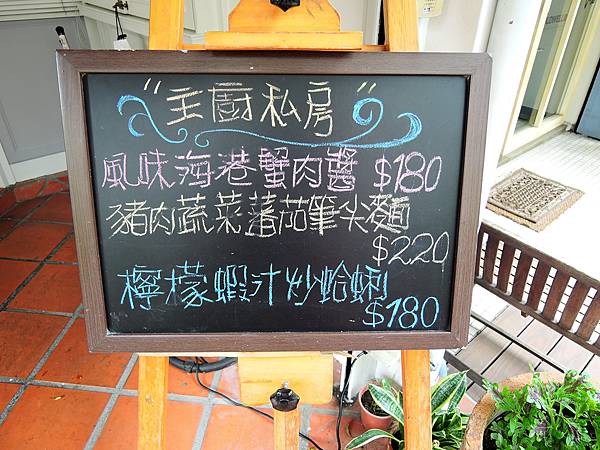 "主廚私房"
風味海港蟹肉醬 $180
豬肉蔬菜蕃茄筆尖麵
$220
檸檬蝦汁炒蛤蜊
$180